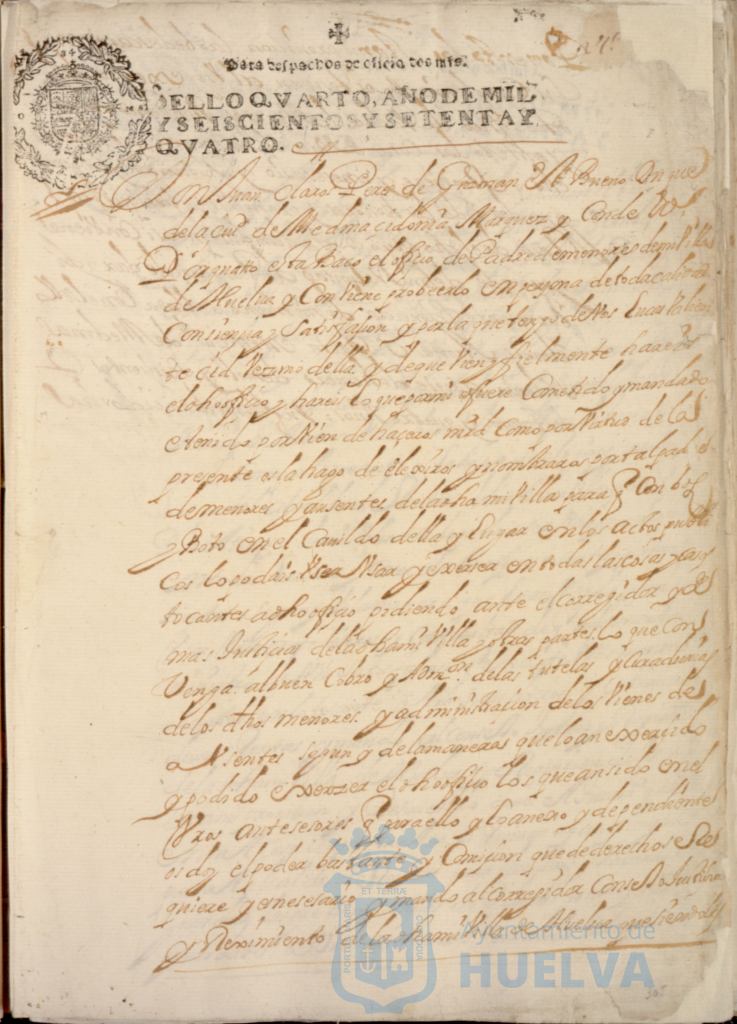 Para despachos de oficio dos mrs.
SELLO QVARTO, AÑO DE MIL
Y SEISCIENTOS Y SETENTA Y
QVATRO.
Don Juan Claros Perez de Guzman el Bueno Duque
de la ciu.d de Medinacidonia Marquez y Conde &.
Porquanto esta Baco el offiçio de Padre de menores de mi Villa
de Huelva y Conviene probeerlo en persona de toda calidad
Consiençia y satisfasion y por la que tengo de Vos Juan
te Cid Vezino della y de que Vien y fielmente hareis
el dho offiçio y hareis lo que por mi os fuere Cometido y mandado
e tenido por Vien de haçeros mrd Como por Virtud de la
presente os la hago de elexiros y nombraros por tal padre
de menores y ausentes de la dha mi Villa para q Con boz
y Boto en el Cauildo della y Lugar en los actos publi
cos lo podais Vsar y exerser en todas las cosas y casos
tocantes a dho offiçio pidiendo ante el corregidor y de
mas Justicias de la dha mi Villa y otras partes lo que Con
Venga al buen Cobro y Adm.on de las tutelas y Curadurias
de los dhos menores y administracion de los Vienes de
ausentes segun y de la manera que lo an exercido
y podido exerzer el dho offiçio los que an sido en el
Vros antesesores q para ello y lo anexo y dependiente
os doy el poder bastante y Comision que de derecho se re
quiere y es nesesario y mando al Corregidor Conssejo Justicia
y Reximiento de la dha mi Villa de Huelva que siendoles
ET TERRÆ
Ayuntamiento de
HUELVA